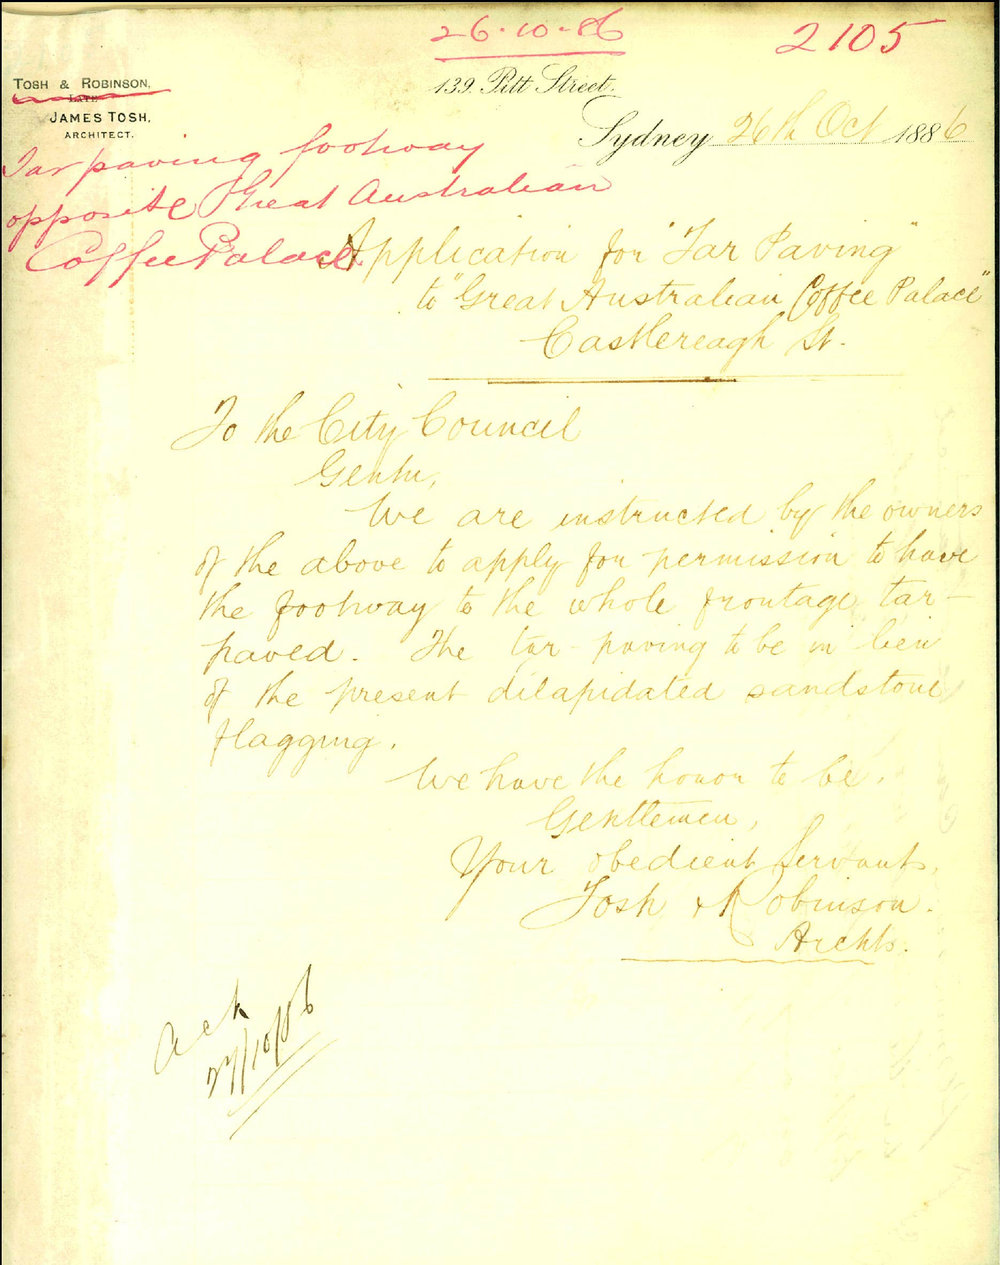 26-10-86
2105
TOSH & ROBINSON,
LATE
JAMES TOSH,
ARCHITECT.
139. Pitt Street.
Sydney 26th Oct 1886
Tar paving footway
opposite Great Australian
Coffee Palace.
Application for "Tar Paving"
to "Great Australian Coffee Palace"
Castlereagh St.
To the City Council
Gentn,
We are instructed by the owners
of the above to apply for permission to have
the footway to the whole frontage tar-
paved. The tar-paving to be in lieu
of the present dilapidated sandstone
flagging.
We have the honor to be,
Gentlemen,
Your obedient Servants,
Tosh & Robinson.
Archts.
Ack
27/10/86